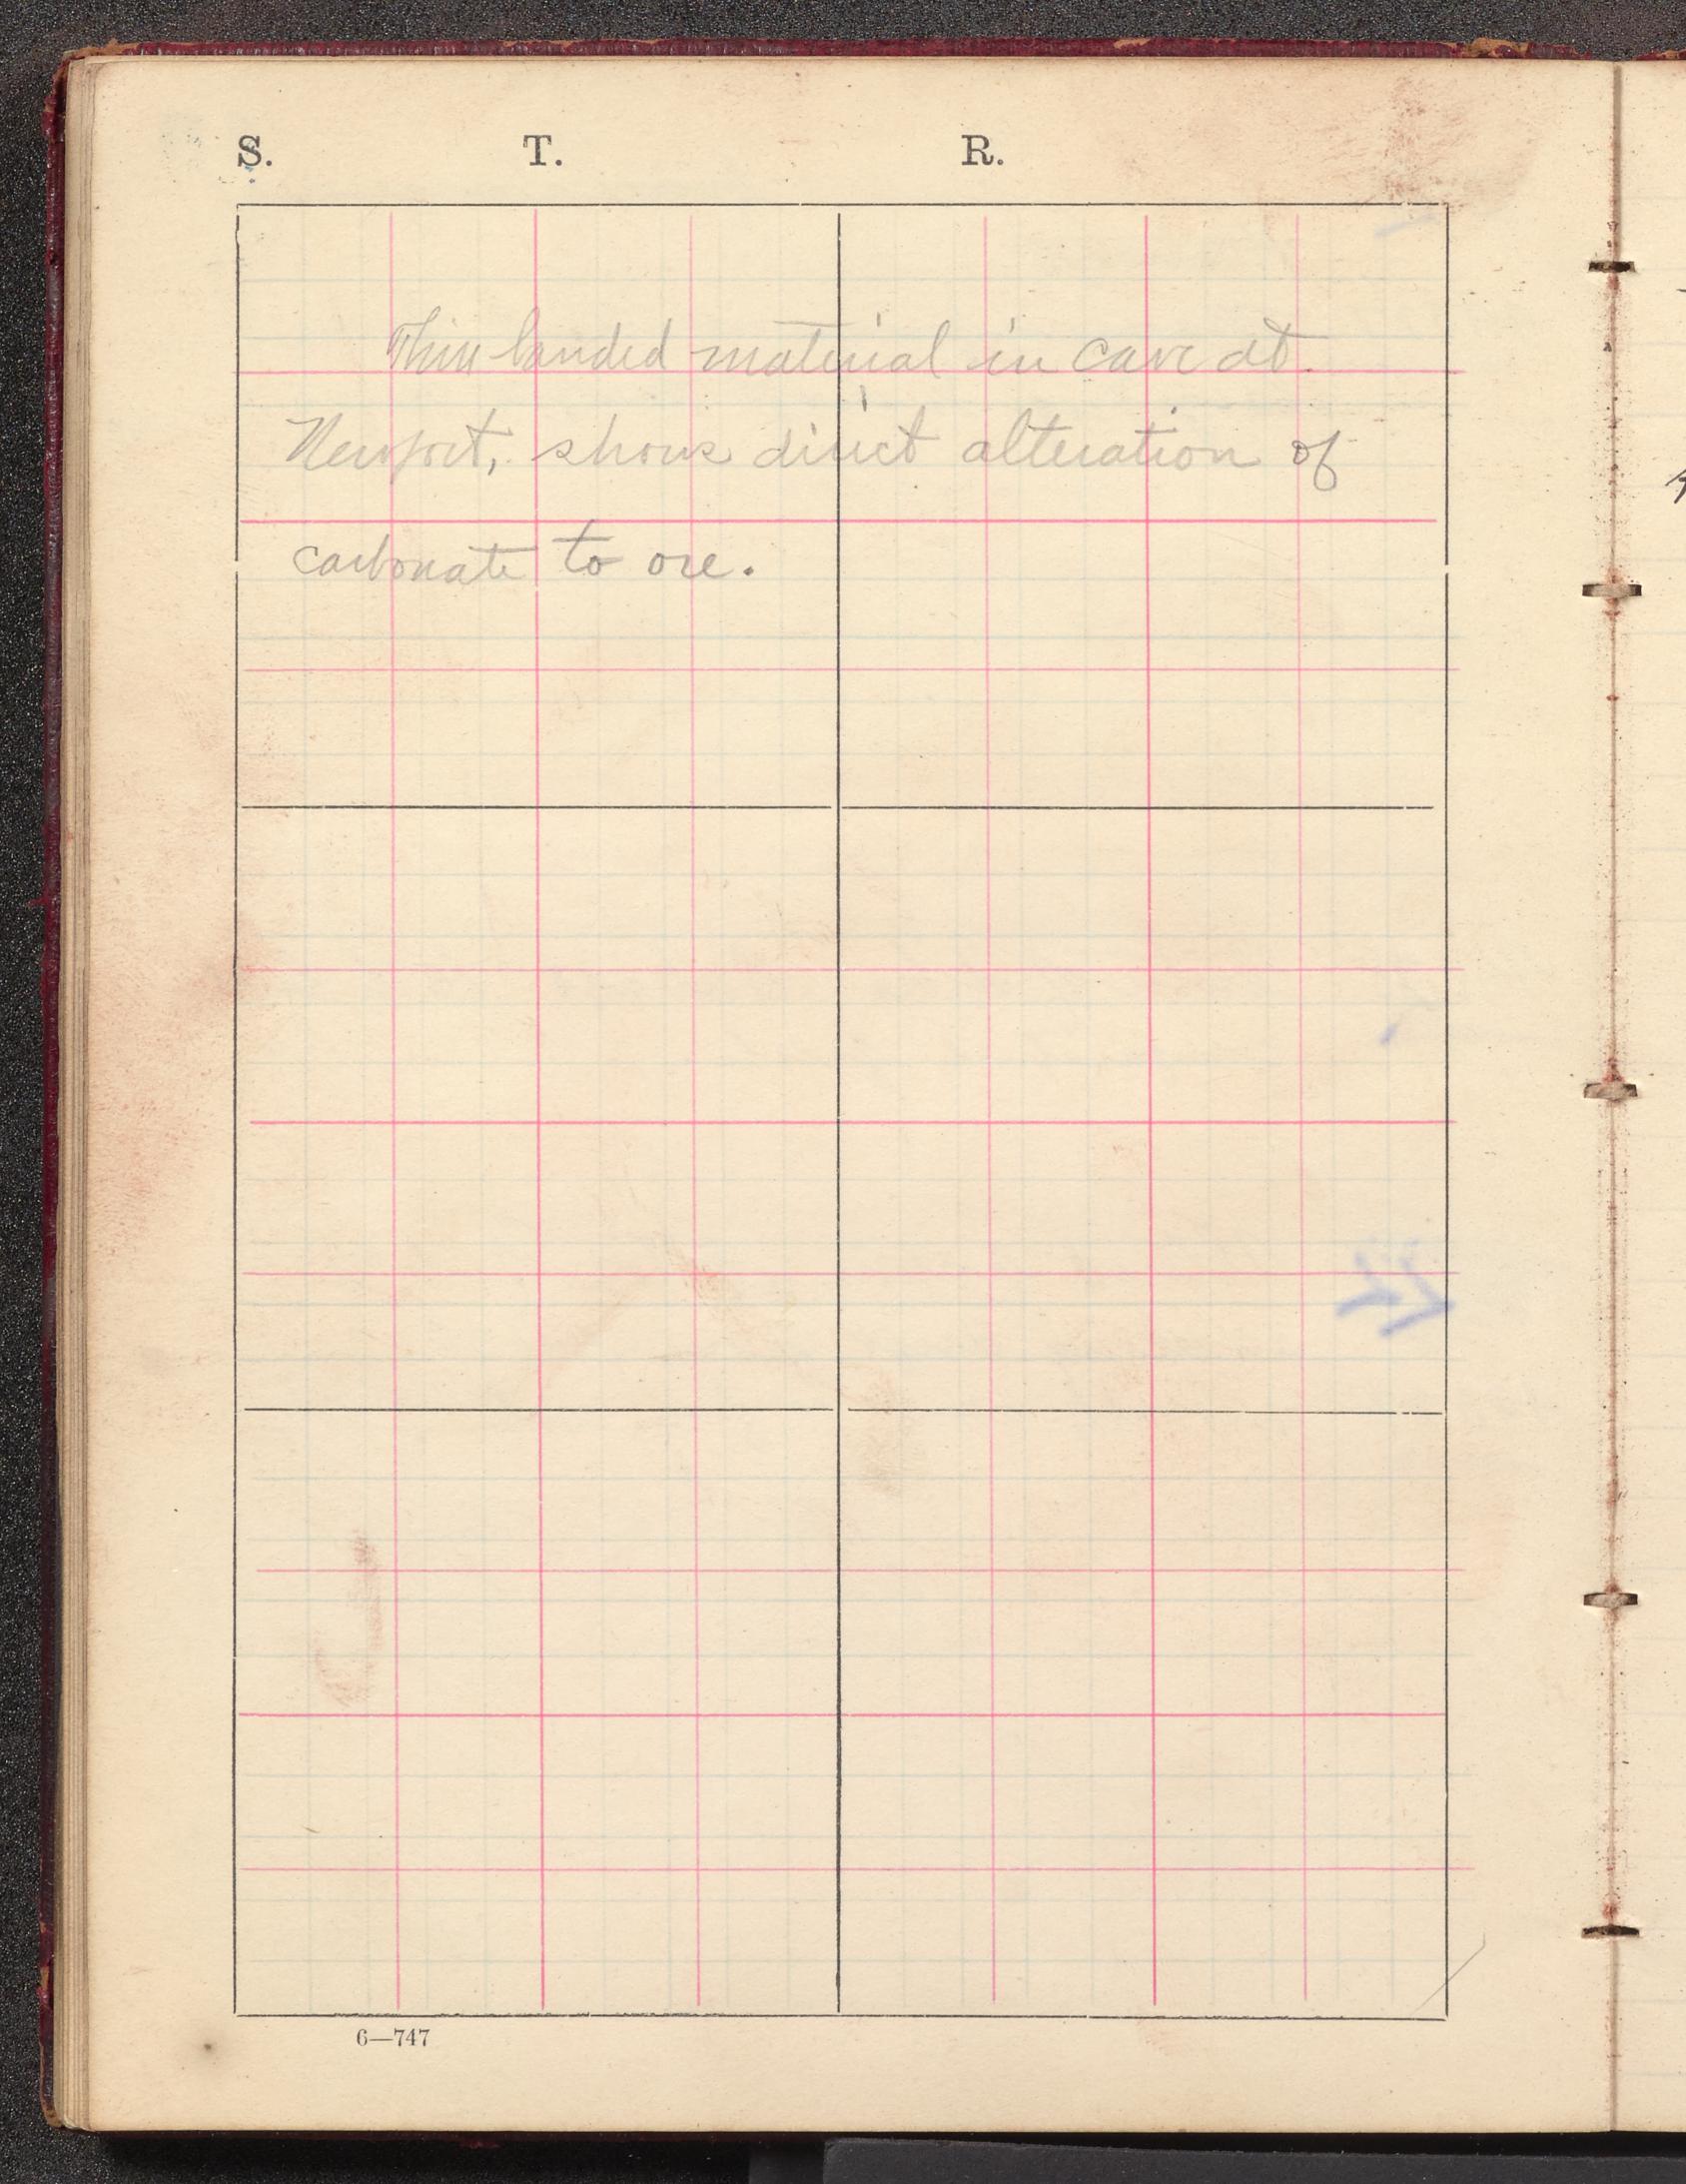 S. T. R.
Thin banded material in cave at
Newport, shows direct alteration of
carbonate to ore.
6—747